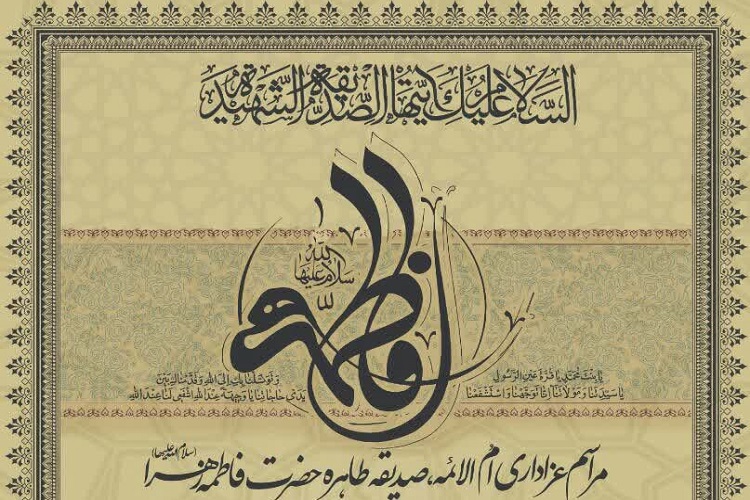 السلام علیك ایتها الصدیقة الشهیدة
فاطمه
سلام الله علیها
یا بنت محمد یا قرة عین الرسول
یا سیدتنا و مولاتنا انا توجهنا و استشفعنا
و توسلنا بك الی الله و قدمناك بین
یدی حاجاتنا یا وجیهة عند الله اشفعی لنا عند الله
مراسم عزاداری ام الائمه، صدیقه طاهره حضرت فاطمه زهرا (سلام الله علیها)